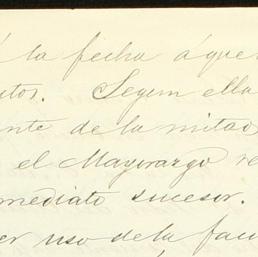 á la fecha á que
tos. Segun ella
nte de la mitad
el Mayorazgo re
mediato sucesor.
er uso de la facu